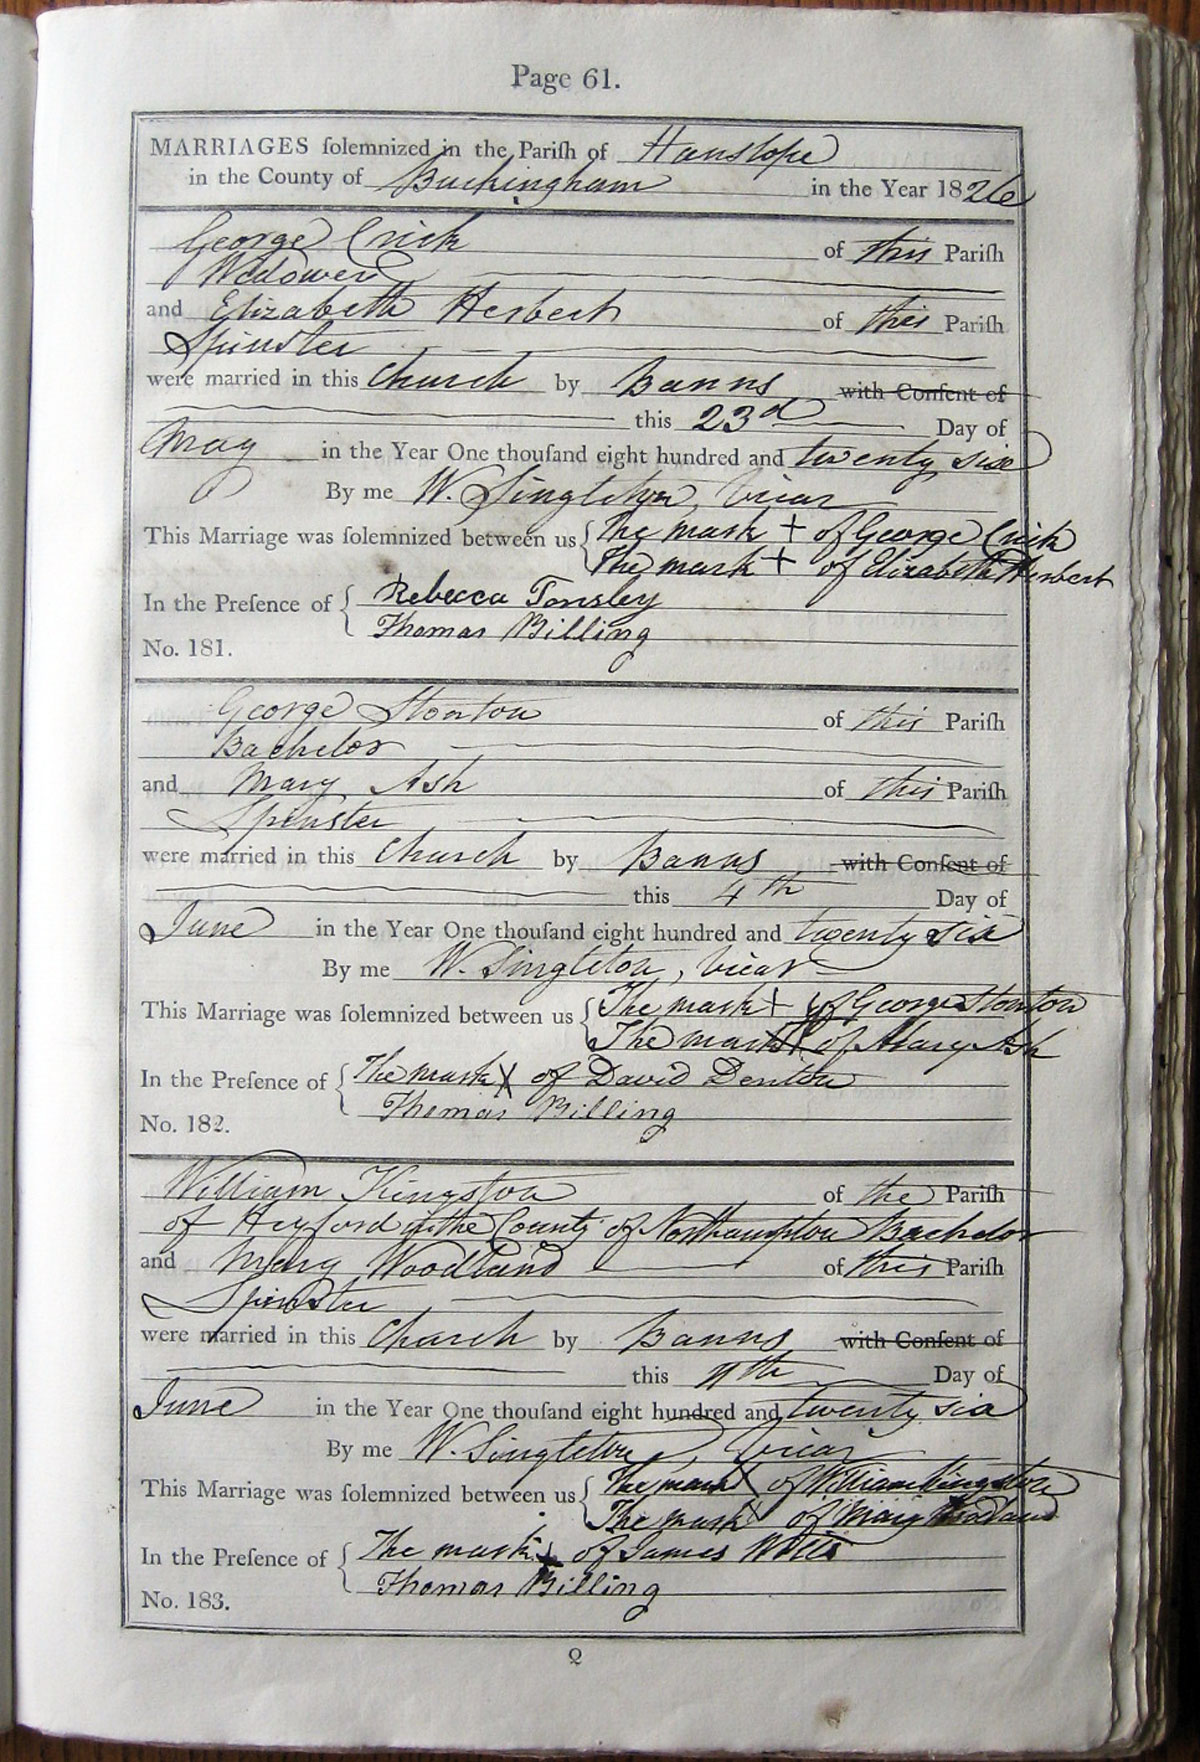 Page 61.
MARRIAGES ſolemnized in the Pariſh of Hanslope
in the County of Buckingham in the Year 1826
George Crick of this Pariſh
Widower
and Elizabeth Herbert of this Pariſh
Spinster
were married in this Church by Banns with Conſent of
this 23d Day of
May in the Year One thouſand eight hundred and twenty six
By me W. Singleton, Vicar
This Marriage was ſolemnized between us { The mark + of George Crick
The mark + of Elizabeth Herbert
In the Preſence of { Rebecca Tonsley
Thomas Billing
No. 181.
George Stonton of this Pariſh
Bachelor
and Mary Ash of this Pariſh
Spinster
were married in this Church by Banns with Conſent of
this 4th Day of
June in the Year One thouſand eight hundred and twenty six
By me W. Singleton, Vicar
This Marriage was ſolemnized between us { The mark + of George Stonton
The mark X of Mary Ash
In the Preſence of { The mark X of David Denton
Thomas Billing
No. 182.
William Kingston of the Pariſh
of Heyford in the County of Northampton Bachelor
and Mary Woodland of this Pariſh
Spinster
were married in this Church by Banns with Conſent of
this 11th Day of
June in the Year One thouſand eight hundred and twenty six
By me W. Singleton, Vicar
This Marriage was ſolemnized between us { The mark X of William Kingston
The mark X of Mary Woodland
In the Preſence of { The mark + of James Willis
Thomas Billing
No. 183.
Q